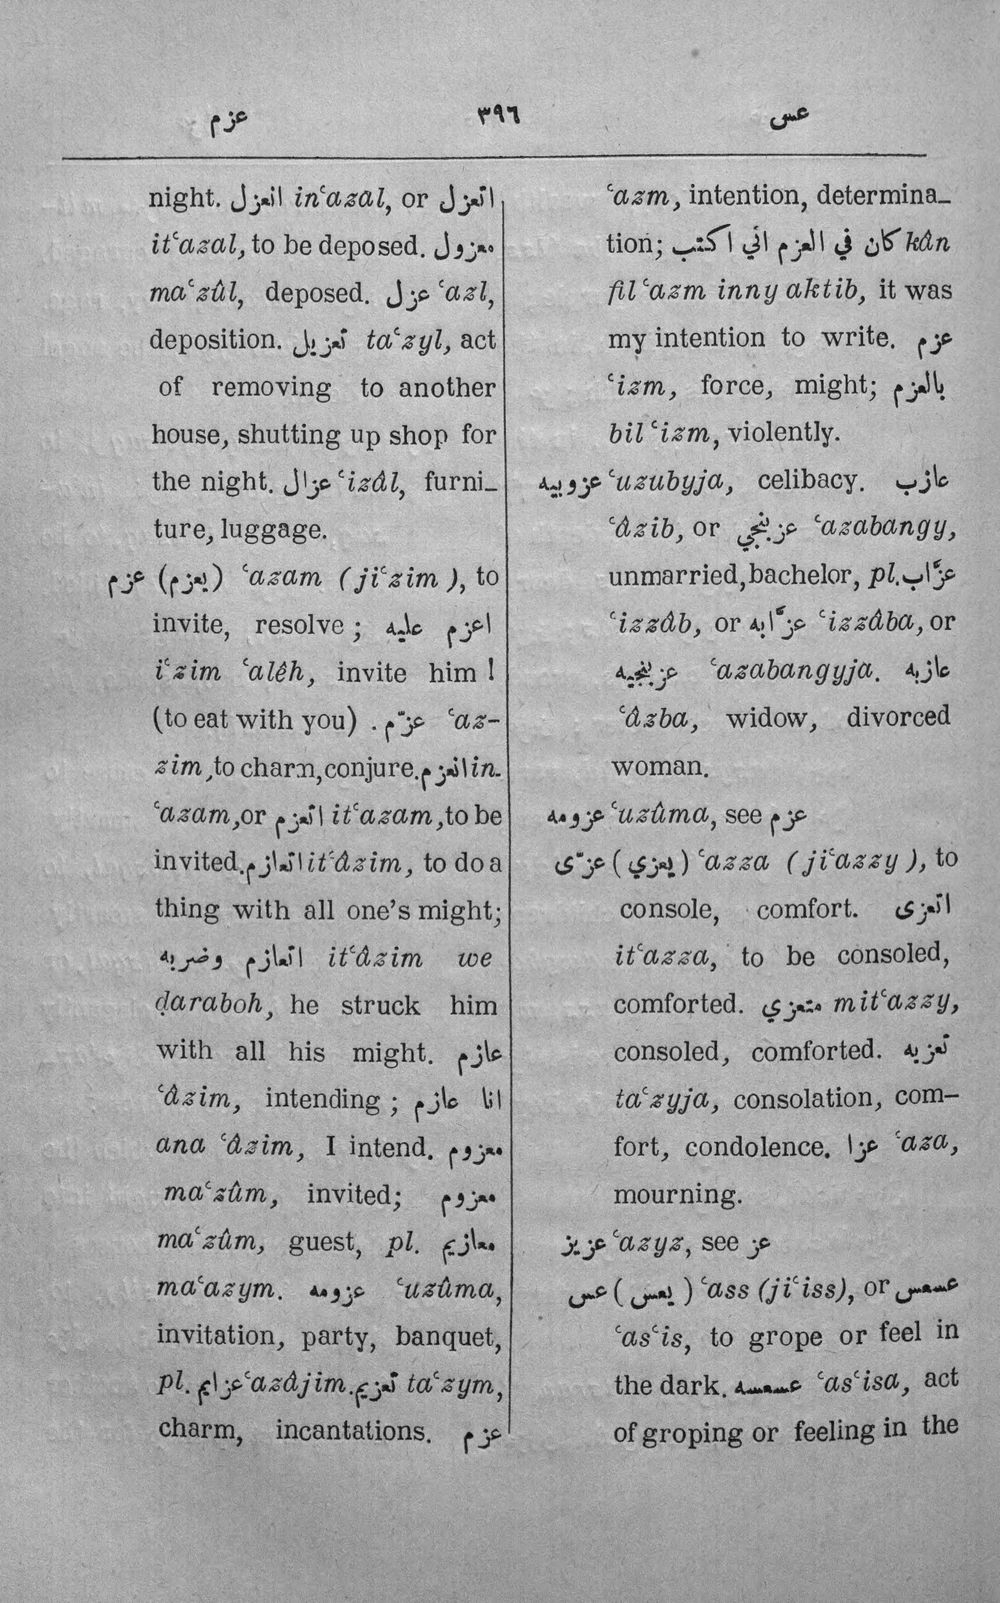 عزم ٣٩٦ عس
night. انعزل in‘azal, or اتعزل
it‘azal, to be deposed. معزول
ma‘zûl, deposed. عزل ‘azl,
deposition. تعزيل ta‘zyl, act
of removing to another
house, shutting up shop for
the night. عزال ‘izâl, furni-
ture, luggage.
عزم (يعزم) ‘azam (ji‘zim), to
invite, resolve; اعزم عليه
i‘zim ‘alêh, invite him!
(to eat with you). عزّم ‘az-
zim, to charm, conjure. انعزم in-
‘azam, or اتعزم it‘azam, to be
invited. اتعازم it‘âzim, to do a
thing with all one's might;
اتعازم وضربه it‘âzim we
ḍaraboh, he struck him
with all his might. عازم
‘âzim, intending; انا عازم
ana ‘âzim, I intend. معزوم
ma‘zûm, invited; معزوم
ma‘zûm, guest, pl. معازيم
ma‘azym. عزومه ‘uzûma,
invitation, party, banquet,
pl. عزايم ‘azâjim. تعزيم ta‘zym,
charm, incantations. عزم
‘azm, intention, determina-
tion; كان في العزم اني اكتب kân
fil ‘azm inny aktib, it was
my intention to write. عزم
‘izm, force, might; بالعزم
bil ‘izm, violently.
عزوبيه ‘uzubyja, celibacy. عازب
‘âzib, or عزبنجي ‘azabangy,
unmarried, bachelor, pl. عزّاب
‘izzâb, or عزّابه ‘izzâba, or
عزبنجيه ‘azabangyja. عازبه
‘âzba, widow, divorced
woman.
عزومه ‘uzûma, see عزم
عزّى (يعزي) ‘azza (ji‘azzy), to
console, comfort. اتعزى
it‘azza, to be consoled,
comforted. متعزي mit‘azzy,
consoled, comforted. تعزيه
ta‘zyja, consolation, com-
fort, condolence. عزا ‘aza,
mourning.
عزيز ‘azyz, see عز
عس (يعس) ‘ass (ji‘iss), or عسعس
‘as‘is, to grope or feel in
the dark. عسعسه ‘as‘isa, act
of groping or feeling in the